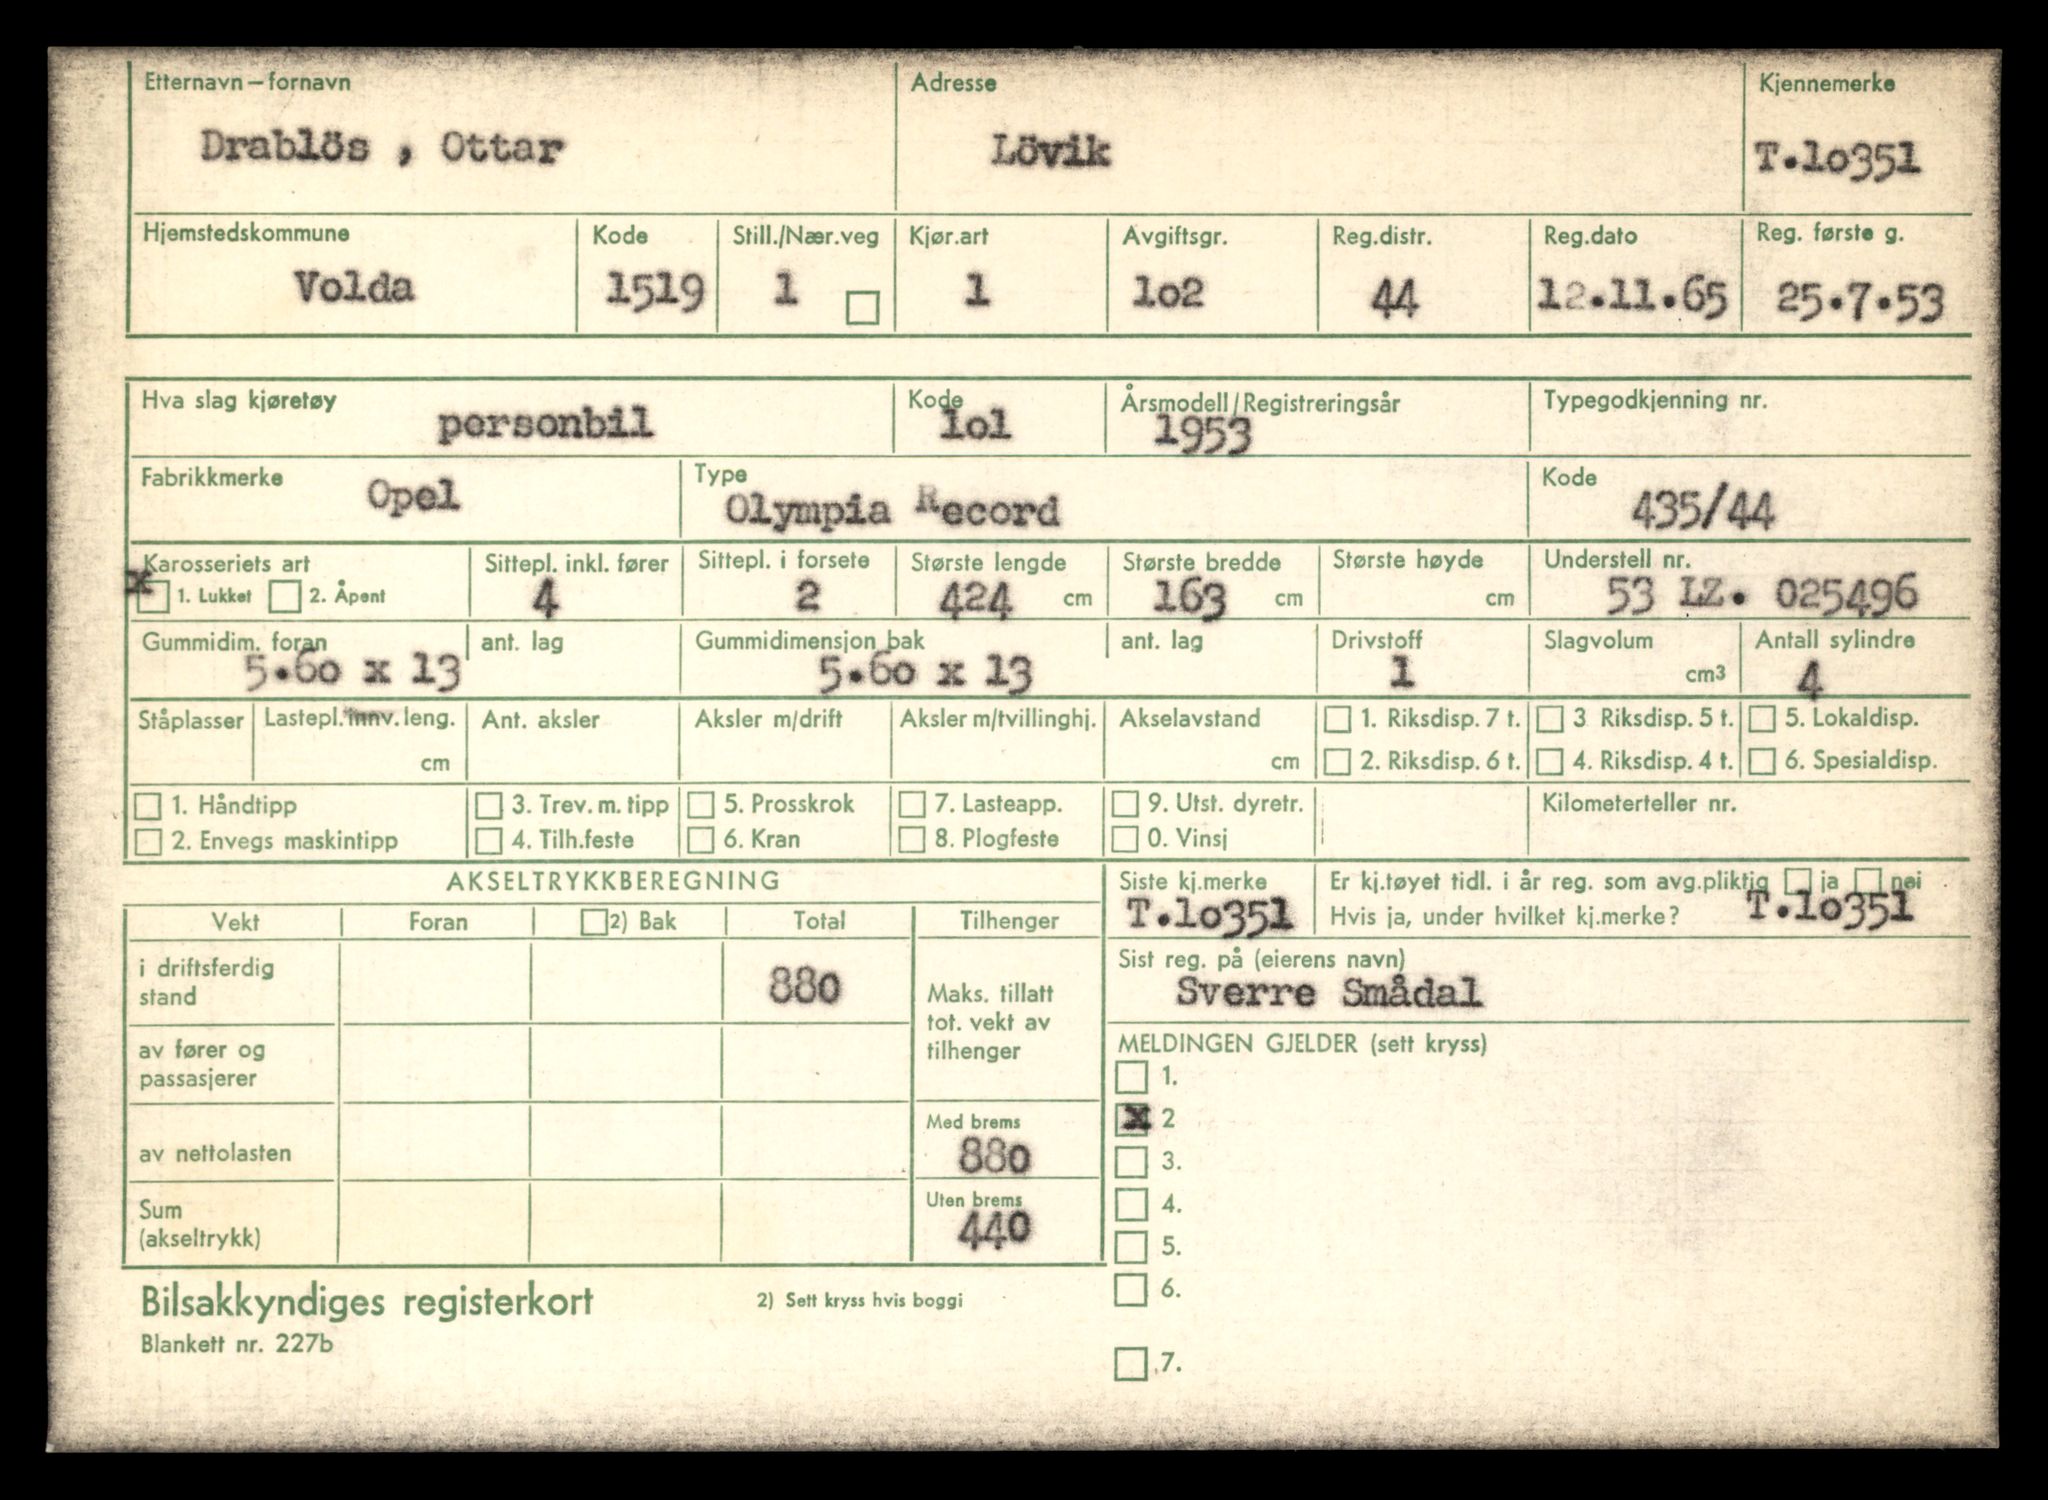 Etternavn – fornavn Adresse Kjennemerke
Drablös , Ottar Lövik T.lo351
Hjemstedskommune Kode Still./Nær.veg Kjør.art Avgiftsgr. Reg.distr. Reg.dato Reg. første g.
Volda 1519 1 1 lo2 44 12.11.65 25.7.53
Hva slag kjøretøy Kode Årsmodell/Registreringsår Typegodkjenning nr.
personbil lol 1953
Fabrikkmerke Type Kode
Opel Olympia Record 435/44
Karosseriets art Sittepl. inkl. fører Sittepl. i forsete Største lengde Største bredde Største høyde Understell nr.
x 1. Lukket 2. Åpent 4 2 424 cm 163 cm cm 53 LZ. 025496
Gummidim. foran ant. lag Gummidimensjon bak ant. lag Drivstoff Slagvolum Antall sylindre
5.60 x 13 5.60 x 13 1 cm3 4
Ståplasser Lastepl. innv. leng. Ant. aksler Aksler m/drift Aksler m/tvillinghj. Akselavstand 1. Riksdisp. 7 t. 3 Riksdisp. 5 t. 5. Lokaldisp.
cm cm 2. Riksdisp. 6 t. 4. Riksdisp. 4 t. 6. Spesialdisp.
1. Håndtipp 3. Trev. m. tipp 5. Prosskrok 7. Lasteapp. 9. Utst. dyretr. Kilometerteller nr.
2. Envegs maskintipp 4. Tilh.feste 6. Kran 8. Plogfeste 0. Vinsj
AKSELTRYKKBEREGNING
Vekt Foran 2) Bak Total Tilhenger
i driftsferdig
stand 880
Maks. tillatt
tot. vekt av
tilhenger
av fører og
passasjerer
Med brems
av nettolasten 880
Uten brems
Sum
(akseltrykk) 440
Siste kj.merke Er kj.tøyet tidl. i år reg. som avg.pliktig ja nei
T.lo351 Hvis ja, under hvilket kj.merke? T.lo351
Sist reg. på (eierens navn)
Sverre Smådal
MELDINGEN GJELDER (sett kryss)
1.
x 2
3.
4.
5.
6.
7.
Bilsakkyndiges registerkort 2) Sett kryss hvis boggi
Blankett nr. 227b